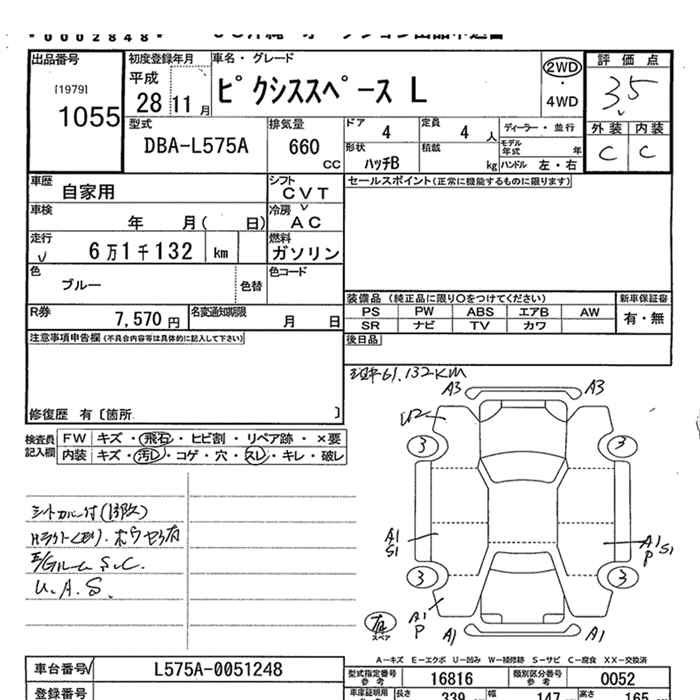 *0002848*
出品番号
[1979]
1055
初度登録年月
平成
28 11 月
車名・グレード
ピクシススペース L
2WD
・
4WD
評価点
3.5
外装 内装
C C
型式
DBA-L575A
排気量
660
CC
ドア 4
定員 4 人
ディーラー・並行
形状 ハッチB
積載 kg
モデル年式 年
ハンドル 左・右
車歴 自家用
シフト CVT
セールスポイント(正常に機能するものに限ります)
車検 年 月( 日)
冷房 AC
走行 6万1千132 km
燃料 ガソリン
色 ブルー 色替
色コード
装備品 (純正品に限り〇をつけてください)
新車保証書
PS PW ABS エアB AW
SR ナビ TV カワ
有・無
R券 7,570 円
名変通知期限 月 日
後日品
注意事項申告欄(不具合内容等は具体的に記入して下さい)
修復歴 有〔箇所 〕
検査員記入欄
FW キズ・飛石・ヒビ割・リペア跡・×要
内装 キズ・汚レ・コゲ・穴・スレ・キレ・破レ
61,132KM
A3 A3
U2
3 3
A1
S1
A1
P S1
3 3
A1
P
A1 A1
スペア
シートカバー付
S.C.
U.A.S.
A-キズ E-エクボ U-凹み W-補修跡 S-サビ C-腐食 XX-交換済
車台番号 L575A-0051248
型式指定番号
参考
16816
類別区分番号
参考
0052
登録番号
車庫証明用
参考
長さ 339
幅 147
高さ 165